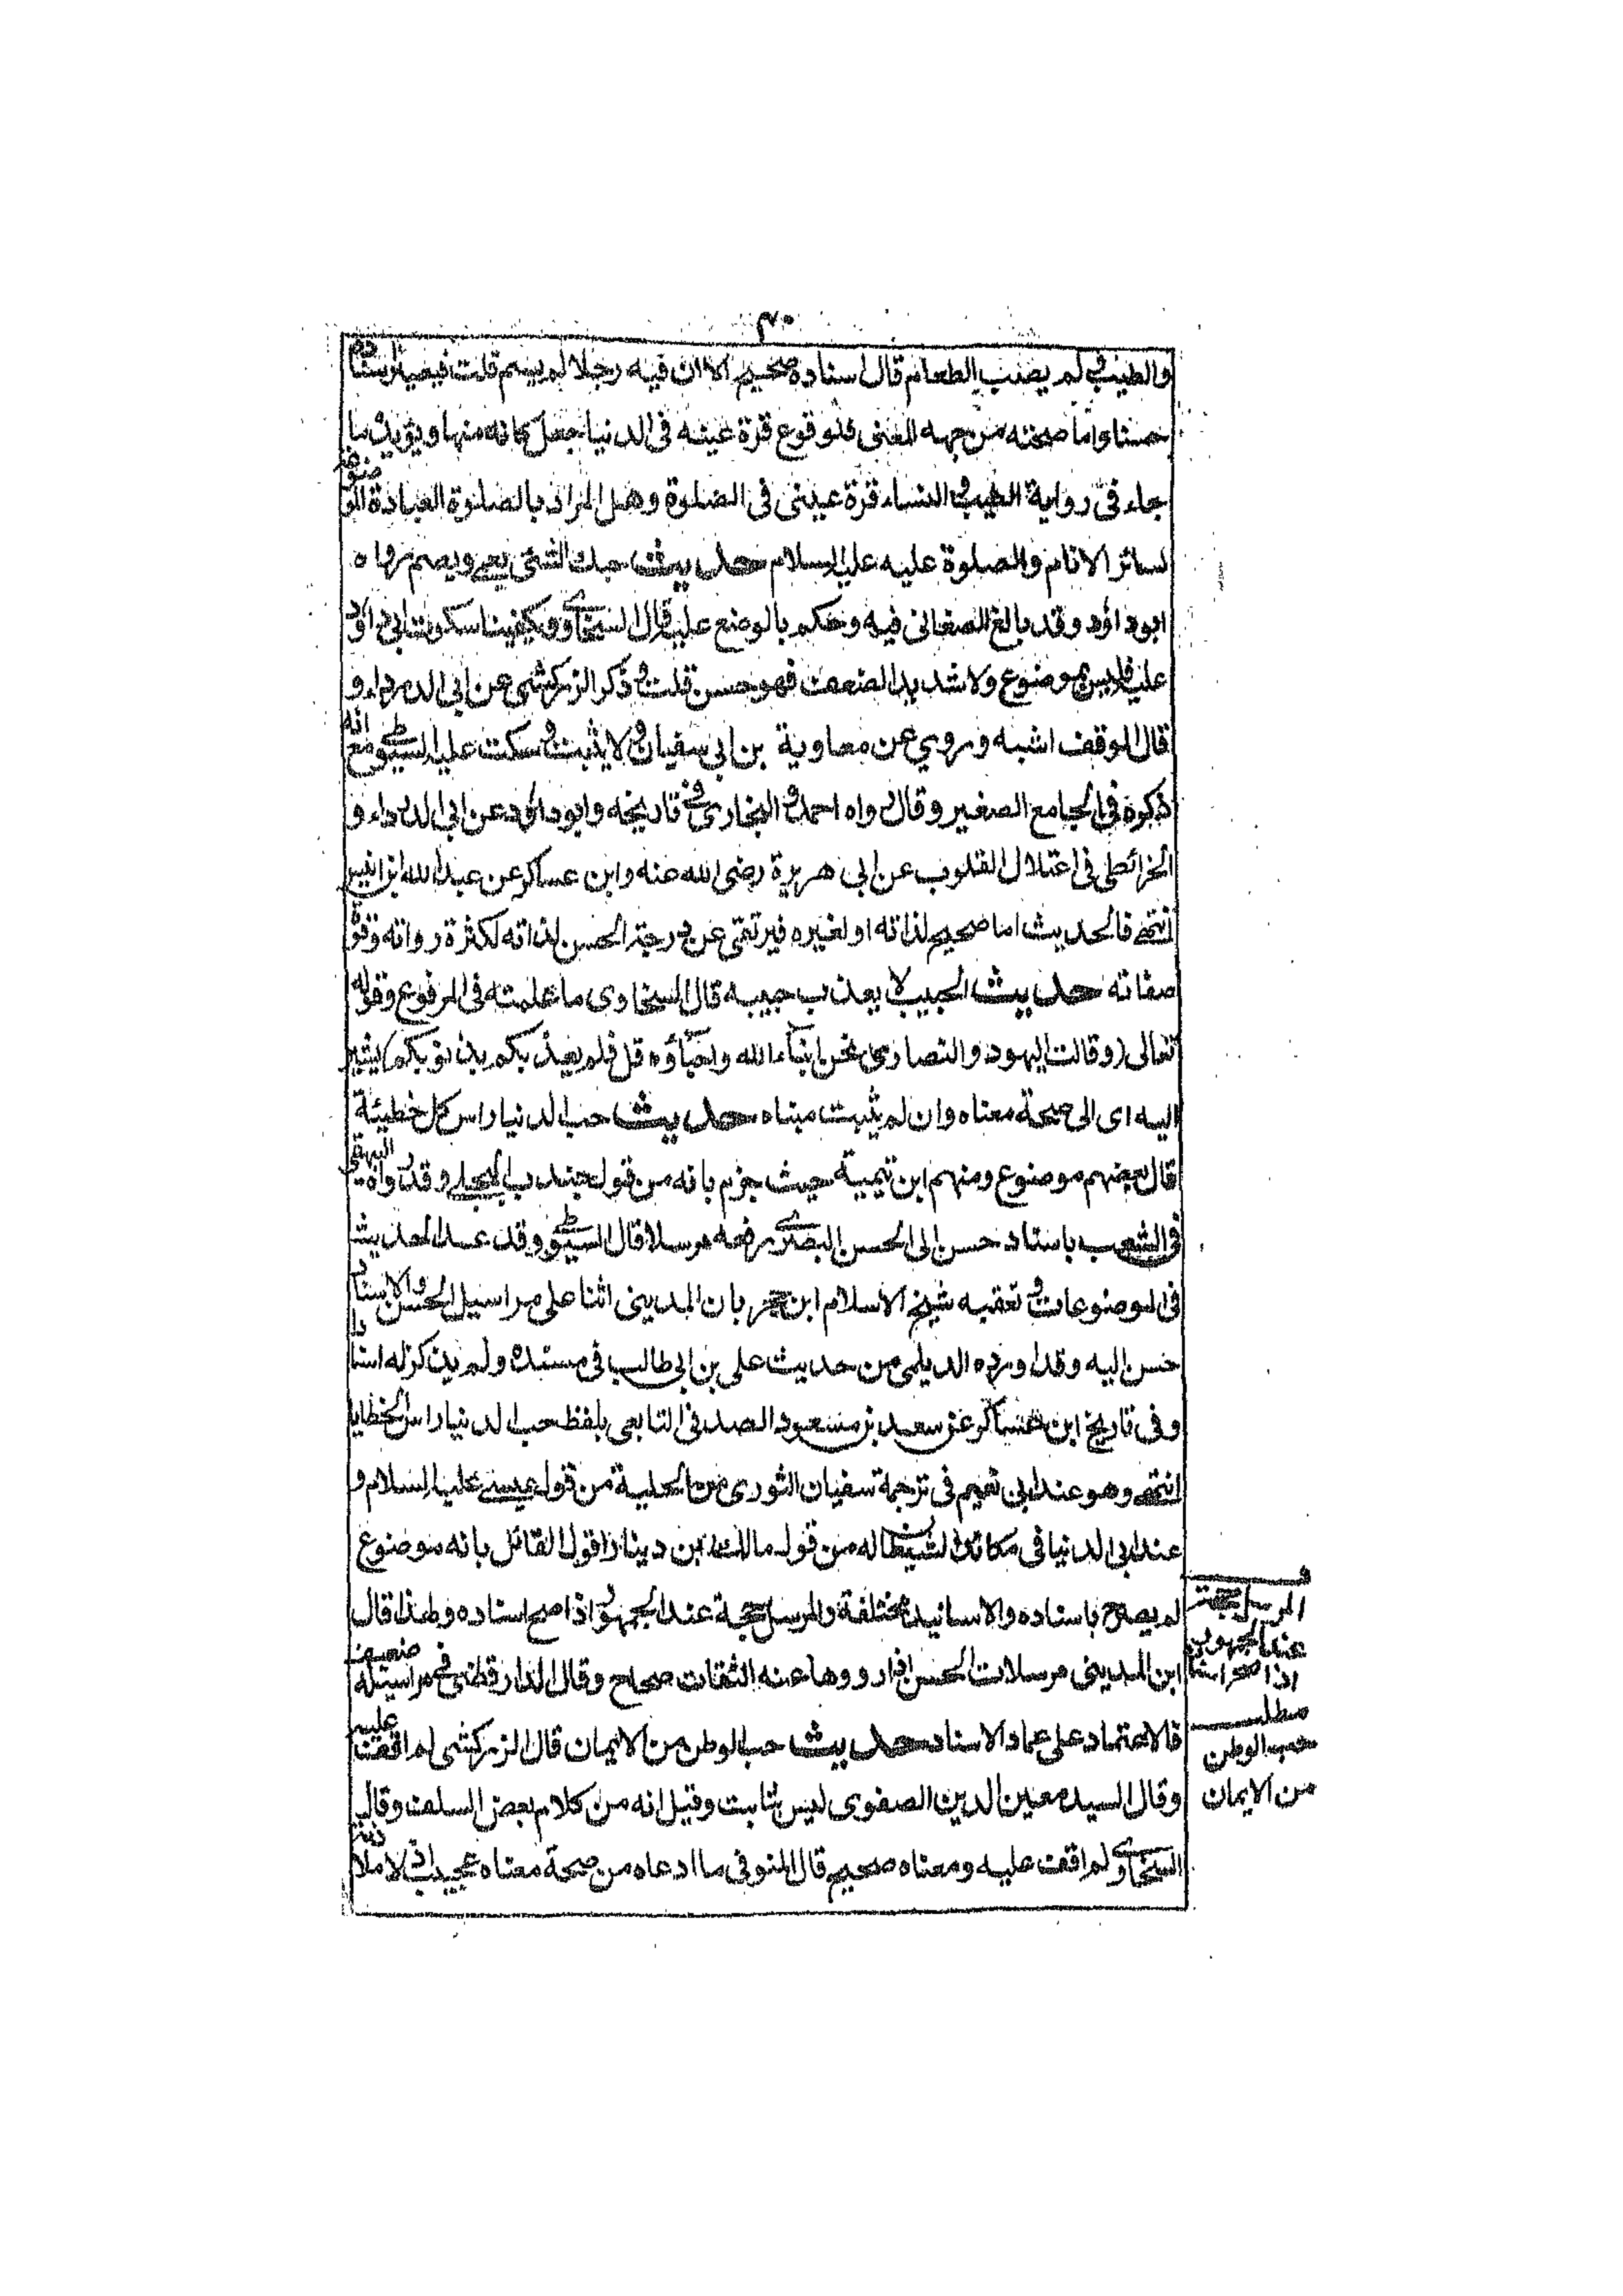 ٣٠
والطيب ولم يصب الطعام قال اسناده صحيح الا ان فيه رجلا لم يسم قلت فيصير اسناده
حسنا واما صحته من جهه المعنى فلوقوع قرة عينه فى الدنيا جعل كانه منها ويؤيده ما
جاء فى رواية الطيب والنساء وقرة عينى فى الصلوة وهل المراد بالصلوة العبادة الموضوعة
لسائر الانام والصلوة عليه عليه السلام حديث حبك الشئ يعمى ويصم رواه
ابوداؤد وقد بالغ الصغانى فيه وحكم بالوضع عليه قال السخاوى ويكفينا سكوت ابى داؤد
عليه فليس بموضوع ولا شديد الضعف فهو حسن قلت وذكر الزركشى عن ابى الدرداء و
قال الوقف اشبه وروي عن معاوية بن ابى سفيان ولا يثبت وسكت عليه السيوطى مع انه
ذكره فى الجامع الصغير وقال رواه احمد والبخارى فى تاريخه وابوداؤد عن ابى الدرداء و
الخرائطى فى اعتلال القلوب عن ابى هريرة رضى الله عنه وابن عساكر عن عبدالله ابن انيس
انتهى فالحديث اما صحيح لذاته او لغيره فيرتقى عن درجة الحسن لذاته لكثرة رواته وقوة
صفاته حديث الحبيب لا يعذب حبيبه قال السخاوى ما علمته فى المرفوع وقوله
تعالى (وقالت اليهود والنصارى نحن ابناء الله واحباؤه قل فلم يعذبكم بذنوبكم) يشير
اليه اى الى صحة معناه وان لم يثبت مبناه حديث حب الدنيا راس كل خطيئة
قال بعضهم موضوع ومنهم ابن تيمية حيث جزم بانه من قول جندب البجلى وقد رواه البيهقى
فى الشعب باسناد حسن الى الحسن البصرى رفعه مرسلا قال السيوطى وقد عد الحديث
فى الموضوعات وتعقبه شيخ الاسلام ابن حجر بان المدينى اثنا على مراسيل الحسن والاسناد
حسن اليه وقد اورده الديلمى من حديث على بن ابى طالب فى مسنده ولم يذكر له اسنادا
وفى تاريخ ابن عساكر عن سعد بن مسعود الصدفى التابعى بلفظ حب الدنيا راس الخطايا
انتهى وهو عند ابى نعيم فى ترجمة سفيان الثورى من الحلية من قول عيسى عليه السلام و
عند ابى الدنيا فى مكائد الشيطان له من قول مالك بن دينار اقول القائل بانه موضوع
لم يصرح باسناده والاسانيد مختلفة والمرسل حجة عند الجمهور اذا صح اسناده ولهذا قال
ابن المدينى مرسلات الحسن اذا رووها عنه الثقات صحاح وقال الدارقطنى فى مراسيله ضعيف
فالاعتماد على عماد الاسناد حديث حب الوطن من الايمان قال الزركشى لم اقف عليه
وقال السيد معين الدين الصفوى ليس بثابت وقيل انه من كلام بعض السلف وقال
السخاوى لم اقف عليه ومعناه صحيح قال المنوفى ما ادعاه من صحة معناه عجيب اذ لا ملازمة
المرسل حجة
عند الجمهور
اذا صح اسناده
مطلب
حب الوطن
من الايمان